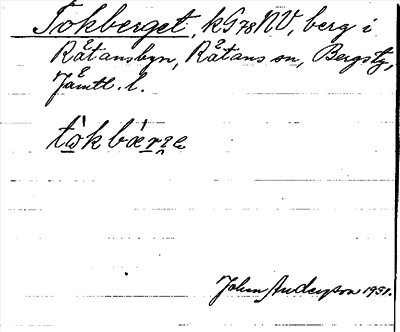 Tokberget, kG78NV, berg i
Råtansbyn, Råtans sn, Bergs tg,
Jämtl. l.
tòkbær̯e
Johan Anderson 1931.